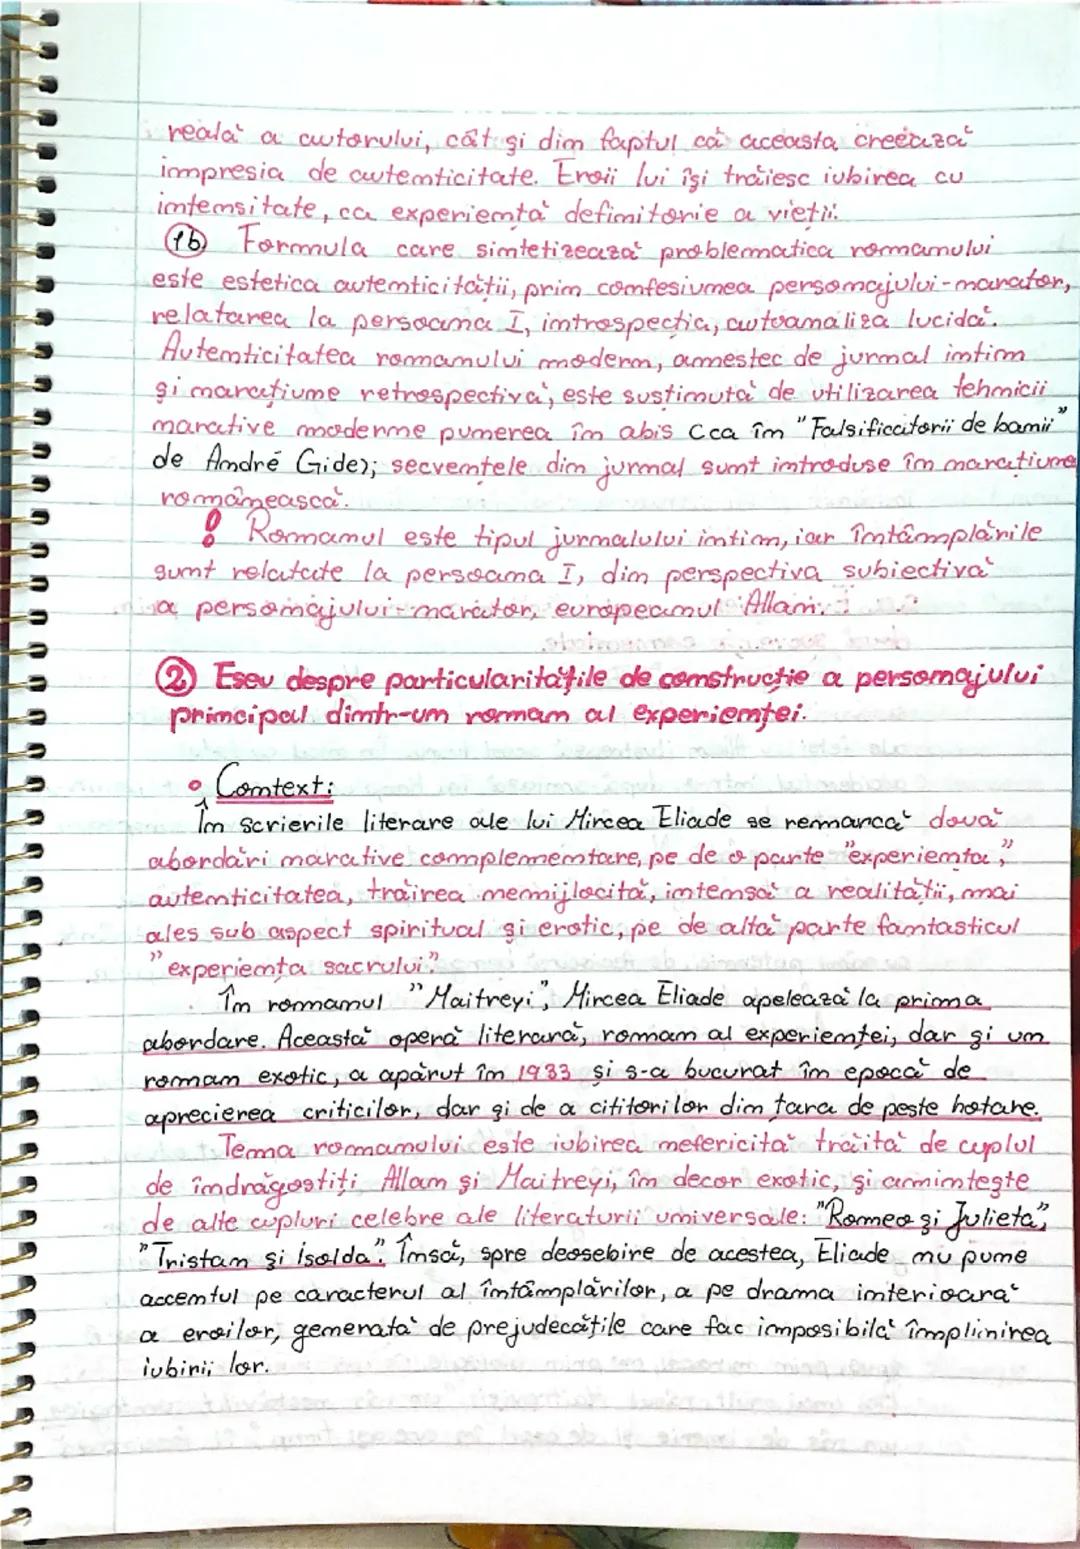 reală a autorului, cât și din faptul că aceasta creează
impresia de autenticitate. Eroii lui își trăiesc iubirea cu
intensitate, ca experiența definitorie a vieții.
1b Formula care sintetizează problematica romanului
este estetica autenticității, prin confesiunea personajului-narator,
relatarea la persoana I, introspecția, autoanaliza lucidă.
Autenticitatea romanului modern, amestec de jurnal intim
și narațiune retrospectivă, este susținută de utilizarea tehnicii
narative moderne punerea în abis (ca în "Falsificatorii de bani"
de André Gide); secvențele din jurnal sunt introduse în narațiunea
românească.
! Romanul este tipul jurnalului intim, iar întâmplările
sunt relatate la persoana I, din perspectiva subiectivă
a personajului-narator, europeanul Allan.
2 Eseu despre particularitățile de construcție a personajului
principal dintr-un roman al experienței.
• Context:
În scrierile literare ale lui Mircea Eliade se remarcă două
abordări narative complementare, pe de o parte "experiența",
autenticitatea, trăirea nemijlocită, intensă a realității, mai
ales sub aspect spiritual și erotic, pe de altă parte fantasticul
"experiența sacrului".
În romanul "Maitreyi", Mircea Eliade apelează la prima
abordare. Această operă literară, roman al experienței, dar și un
roman exotic, a apărut în 1933 și s-a bucurat în epocă de
aprecierea criticilor, dar și de a cititorilor din țara de peste hotare.
Tema romanului este iubirea nefericită trăită de cuplul
de îndrăgostiți Allan și Maitreyi, în decor exotic, și amintește
de alte cupluri celebre ale literaturii universale: "Romeo și Julieta",
"Tristan și Isolda". Însă, spre deosebire de acestea, Eliade nu pune
accentul pe caracterul al întâmplărilor, a pe drama interioară
a eroilor, generată de prejudecățile care fac imposibilă împlinirea
iubirii lor.